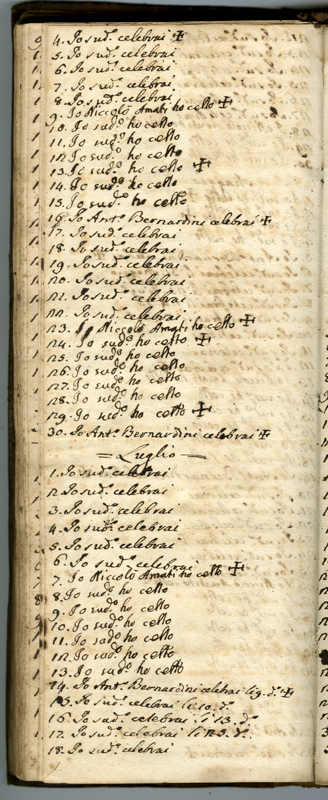 4. Io sud.º celebrai ✠
5. Io sud.º celebrai
6. Io sud.º celebrai
7. Io sud.º celebrai
8. Io sud.º celebrai
9. Io Niccolò Amati ho celto ✠
10. Io sud.º ho celto
11. Io sud.º ho celto
12. Io sud.º ho celto
13. Io sud.º ho celto ✠
14. Io sud.º ho celto
15. Io sud.º ho celto
16. Io Ant.º Bernardini celebrai ✠
17. Io sud.º celebrai
18. Io sud.º celebrai
19. Io sud.º celebrai
20. Io sud.º celebrai
21. Io sud.º celebrai
22. Io sud.º celebrai
23. Io Niccolò Amati ho celto ✠
24. Io sud.º ho celto ✠
25. Io sud.º ho celto
26. Io sud.º ho celto
27. Io sud.º ho celto
28. Io sud.º ho celto
29. Io sud.º ho celto ✠
30. Io Ant.º Bernardini celebrai ✠
= Luglio —
1. Io sud.º celebrai
2. Io sud.º celebrai
3. Io sud.º celebrai
4. Io sud.º celebrai
5. Io sud.º celebrai
6. Io sud.º celebrai
7. Io Niccolò Amati ho celto ✠
8. Io sud.º ho celto
9. Io sud.º ho celto
10. Io sud.º ho celto
11. Io sud.º ho celto
12. Io sud.º ho celto
13. Io sud.º ho celto
14. Io Ant.º Bernardini celebrai ✠
15. Io sud.º celebrai
16. Io sud.º celebrai li 13. d.º
17. Io sud.º celebrai
18. Io sud.º celebrai